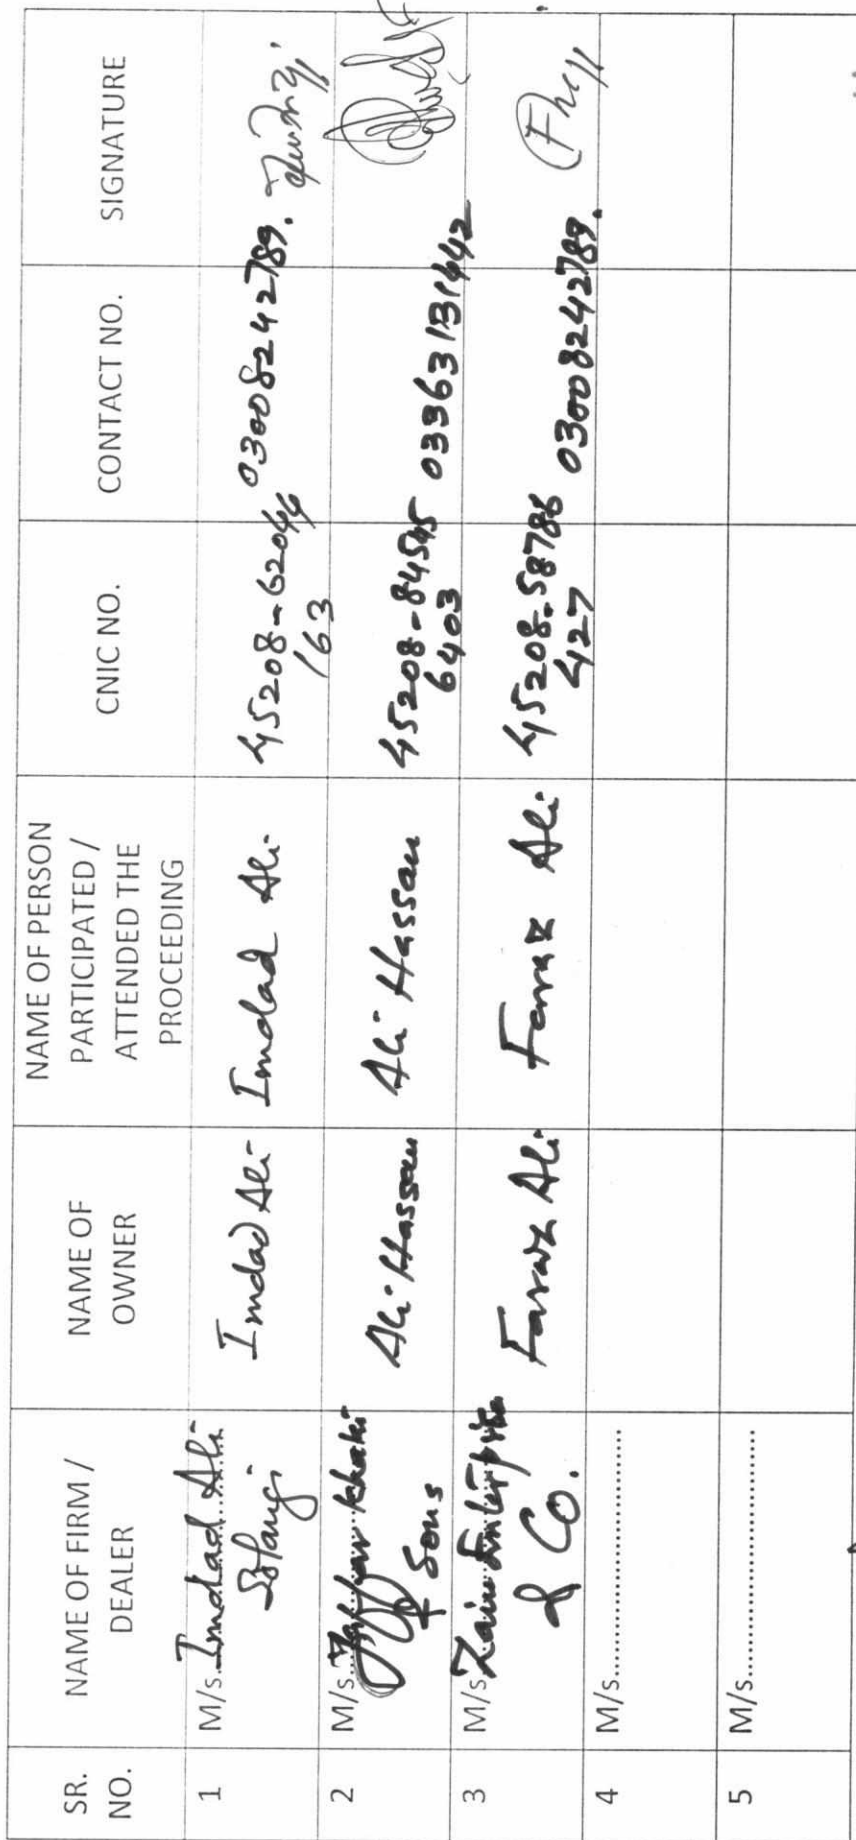 SR. NO. NAME OF FIRM / DEALER NAME OF OWNER NAME OF PERSON PARTICIPATED / ATTENDED THE PROCEEDING CNIC NO. CONTACT NO. SIGNATURE
1 M/s. Imdad Ali Imdad Ali Imdad Ali 45208-62044 03008242789.
163
2 M/s. Jaffar Khaki Ali Hassan Ali Hassan 45208-84545 03363131442
& Sons 6403
3 M/s Zain Enterprise Faraz Ali Faraz Ali 45208-58786 03008242789.
& CO. 427
4 M/s.
5 M/s.